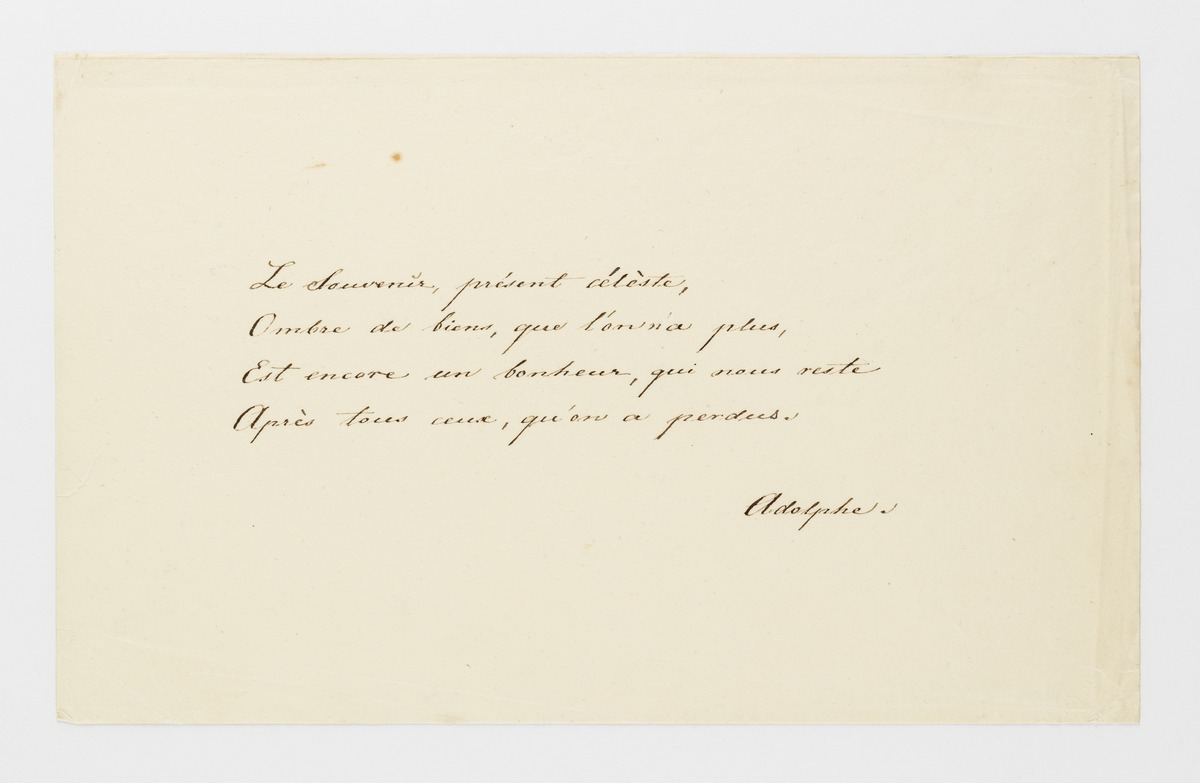 Le Souvenir, présent célèste,
Ombre de biens, que l'on n'a plus,
Est encore un bonheur, qui nous reste
Après tous ceux, qu'on a perdus.
Adolphe.